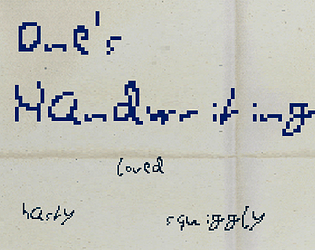 One's
Handwriting
loved
hasty squiggly